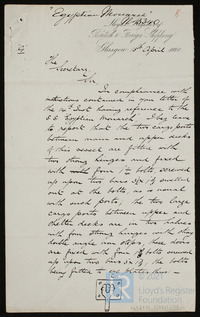 "Egyptian Monarch"
British & Foreign Shipping
Glasgow 5th April 1881
The
Secretary
Sir
In compliance with
instructions contained in your letter of
the inst. having reference to the
S.S. Egyptian Monarch I beg leave
to report that the two cargo ports
between main and upper decks
of this vessel are fitted with
two strong hinges and fixed
with four 1⅛ bolts screwed
up upon two bars swelled
out at the bolts as is usual
with such ports, the two large
cargo ports between upper and
shelter decks are in two halves
with four strong hinges with
double angle iron stops, these doors
are fixed with four bolts screwed
up upon two bars the bolts
being fitted to
Lloyd's Register
Foundation